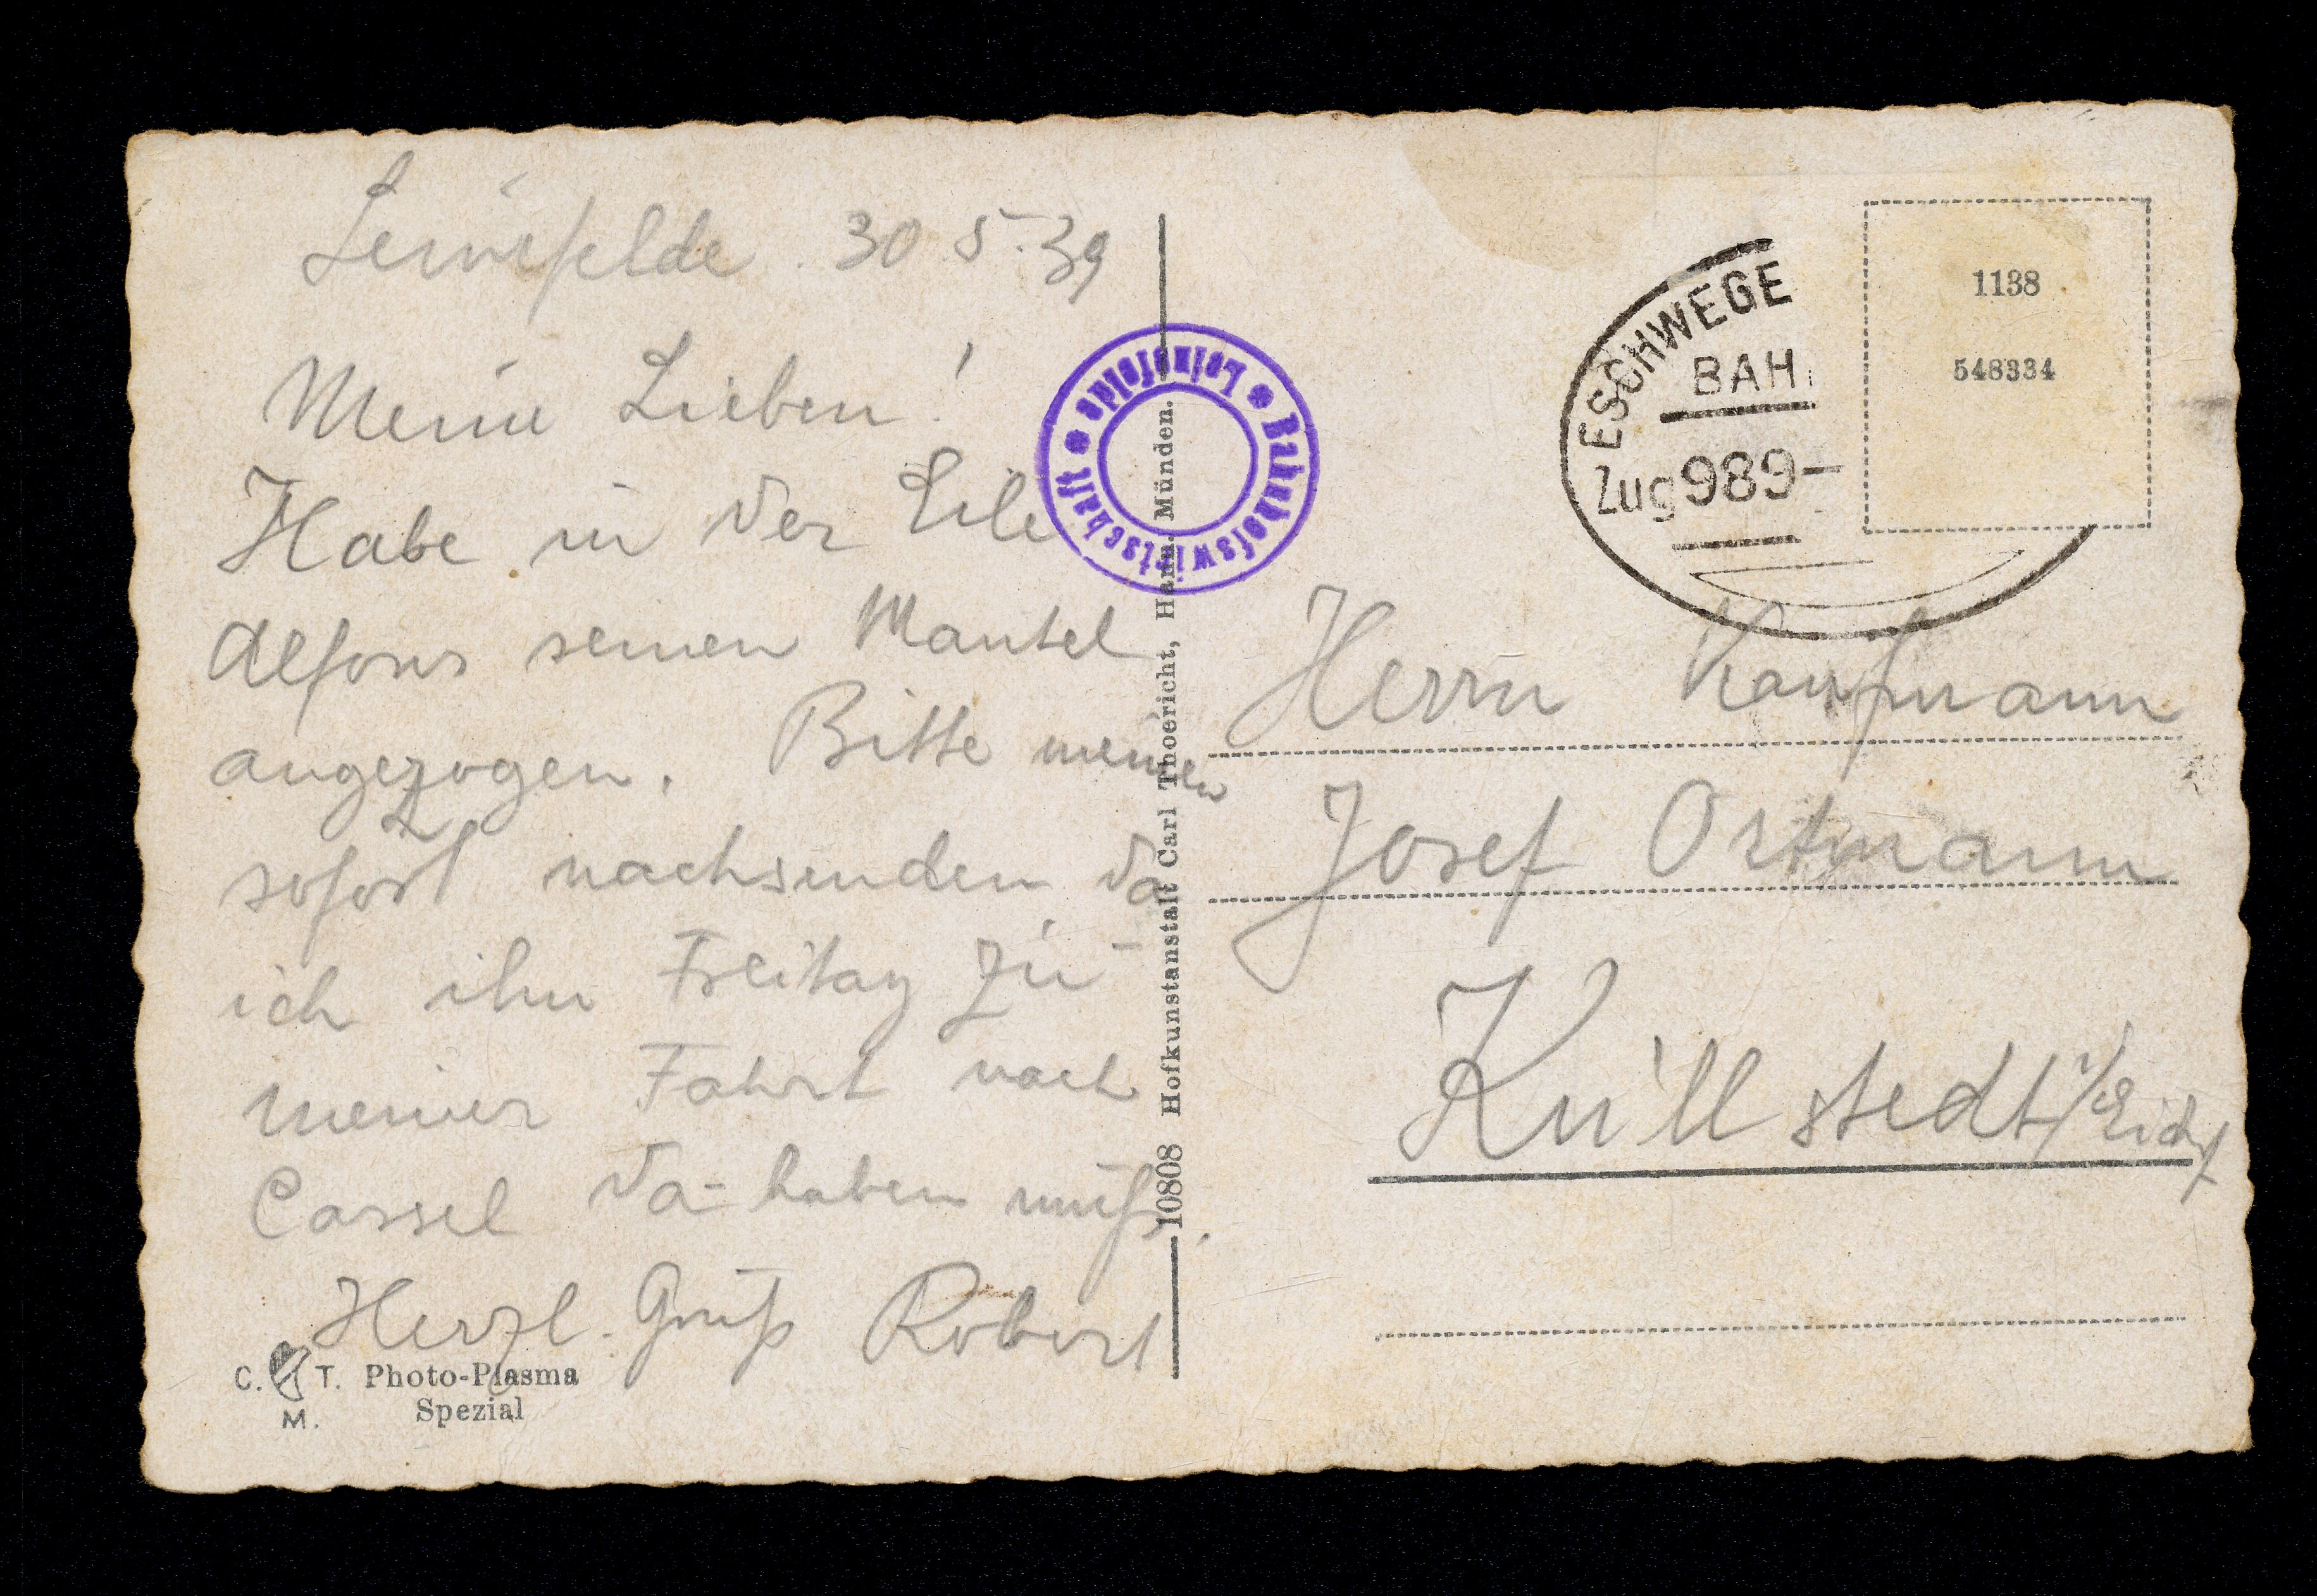 Leinefelde . 30 5. 39
Meine Lieben!
Habe in der Eile
Alfons seinen Mantel
angezogen. Bitte meinen
sofort nachsenden, da
ich ihn Freitag zu-
meiner Fahrt nach
Cassel da-haben muß.
Herzl. Gruß Robert
C. T. M.
Photo-Plasma
Spezial
10808 Hofkunstanstalt Carl Thoericht, Hann. Münden.
* Bahnhofswirtschaft * Leinefelde
ESCHWEGE
BAH
Zug 989-
1138
548334
Herrn Kaufmann
Josef Ortmann
Küllstedt i/Eichf